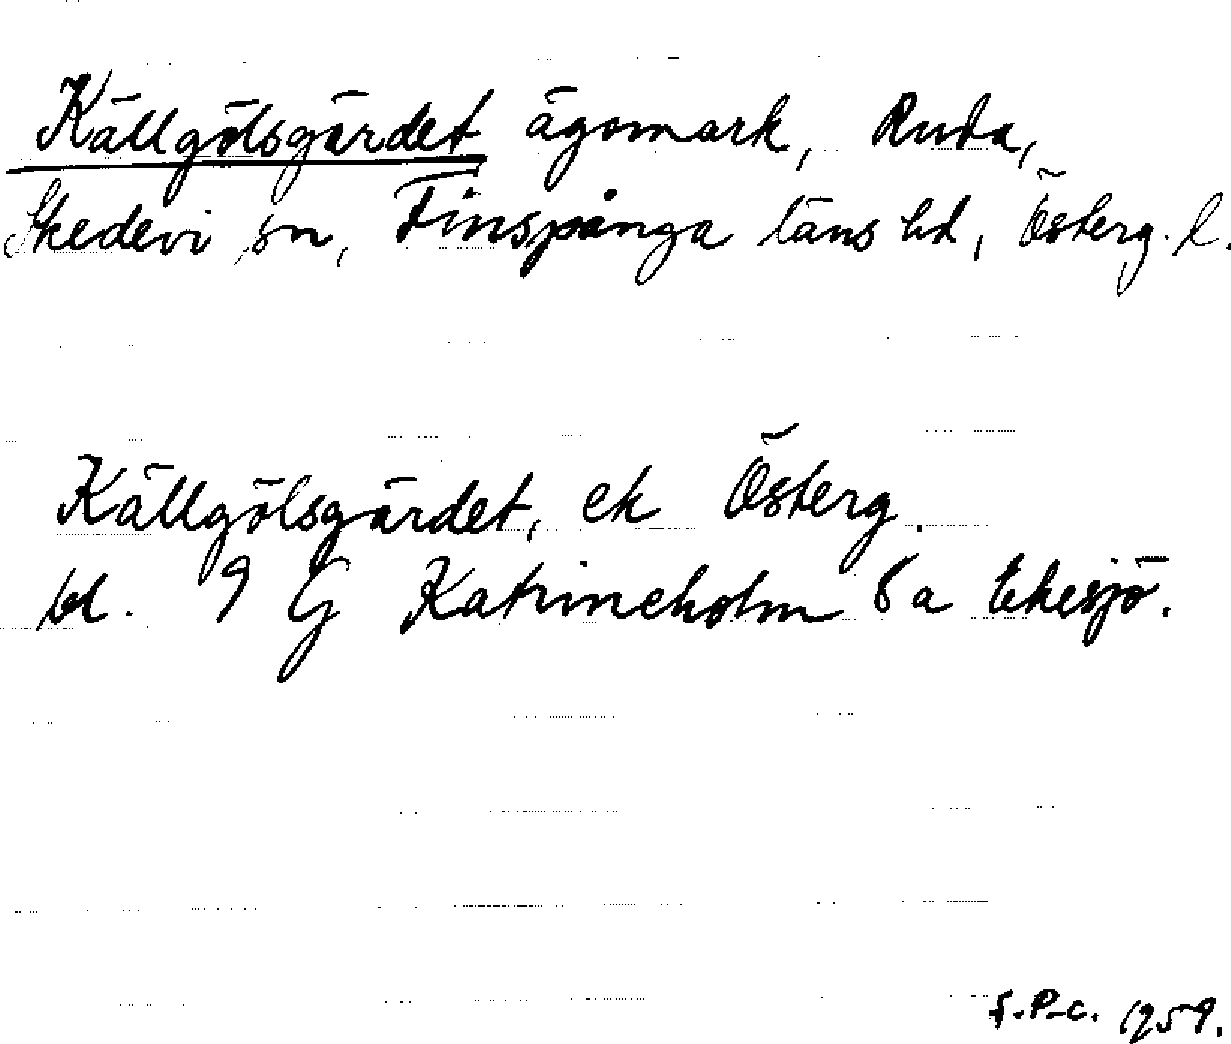 Källgölsgärdet ägomark, Ruda,
Skedevi sn, Finspånga läns hd, Österg. l.
Källgölsgärdet, ek Österg.
bl. 9 G Katrineholm 8a Ekesjö.
f.P-c. 1959.